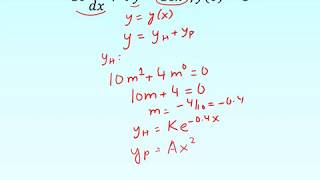 dx
y = y(x)
y = y_H + y_P
y_H:
10m¹ + 4m⁰ = 0
10m + 4 = 0
m = -4/10 = -0.4
y_H = Ke^{-0.4x}
y_P = Ax²